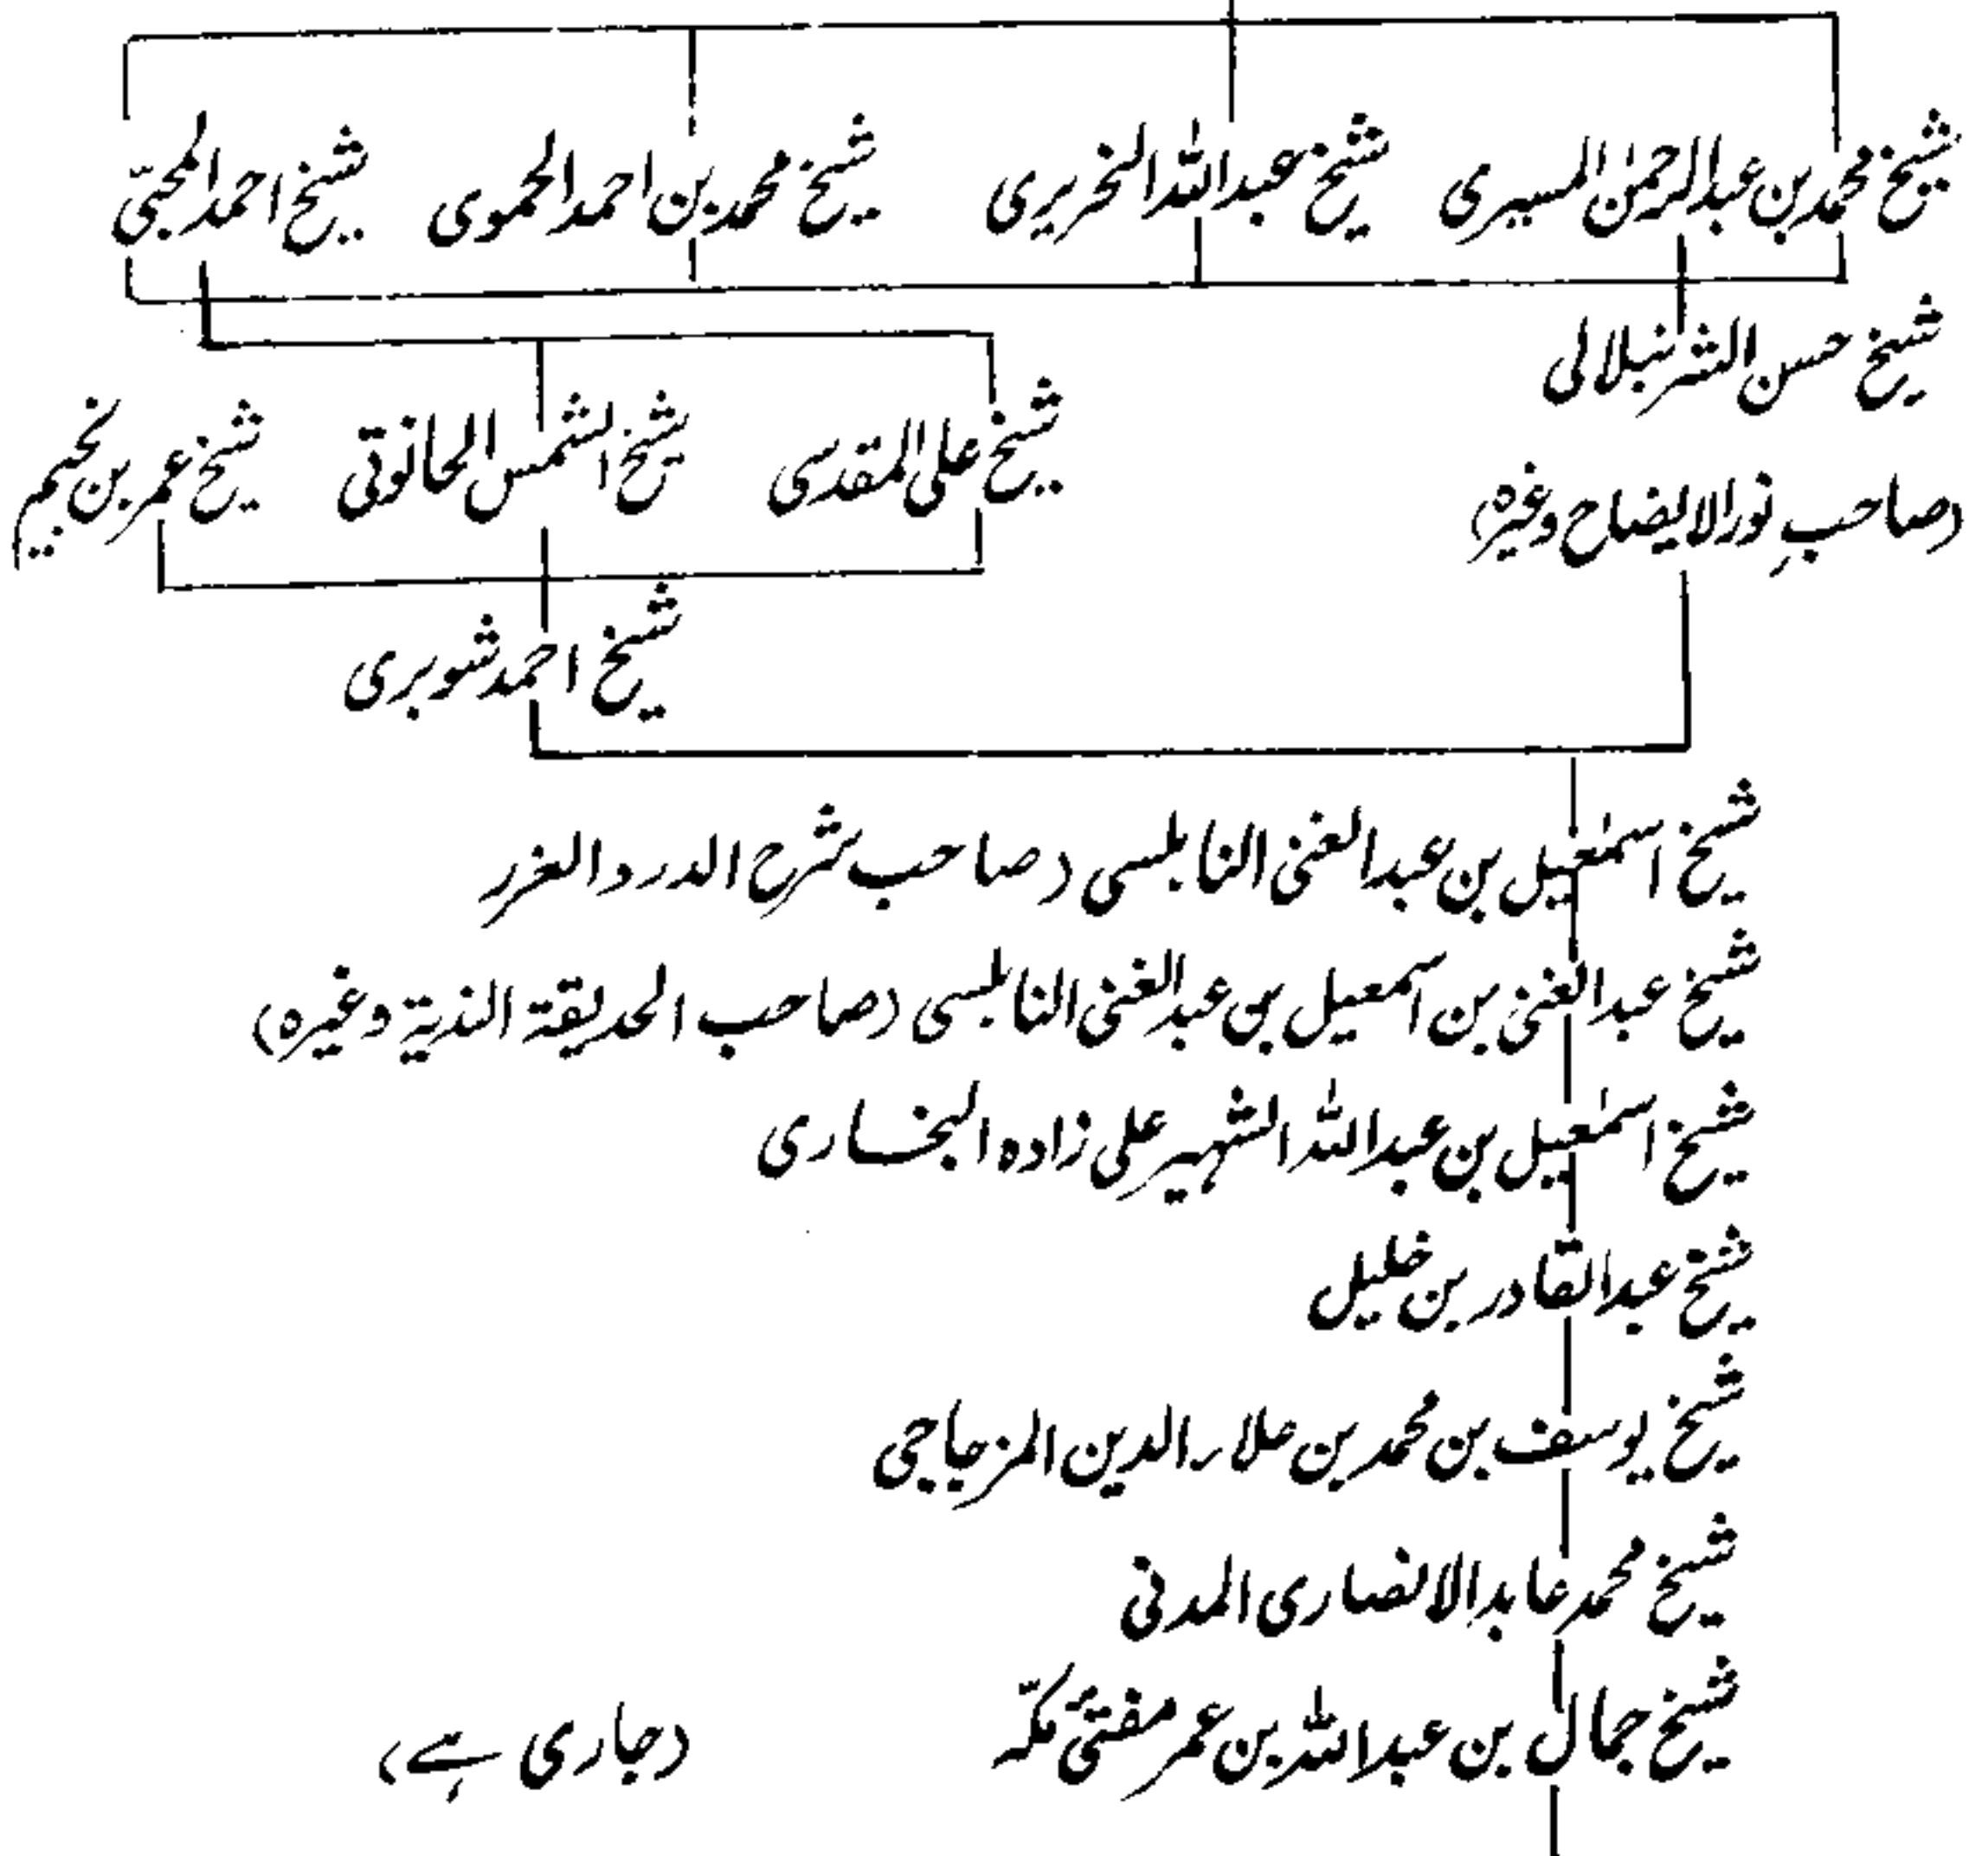 شیخ محمد بن عبدالرحمٰن المسیری شیخ عبداللہ النحریری شیخ محمد بن احمد الحموی شیخ احمد المحبّی
شیخ حسن الشرنبلالی
(صاحبِ نورالایضاح وغیرہ)
شیخ علی المقدسی شیخ الشمس الحانوتی شیخ عمر بن نجیم
شیخ احمد شوبری
شیخ اسمٰعیل بن عبدالغنی النابلسی (صاحب شرح الدرر والغرر
شیخ عبدالغنی بن اسمعیل بن عبدالغنی النابلسی (صاحب الحدیقۃ الندیۃ وغیرہ)
شیخ اسمٰعیل بن عبداللہ الشہیر علی زادہ البخاری
شیخ عبدالقادر بن خلیل
شیخ یوسف بن محمد بن علاء الدین المزجاجی
شیخ محمد عابد الانصاری المدنی
شیخ جمال بن عبداللہ بن عمر مفتئ مکّہ (جاری ہے)